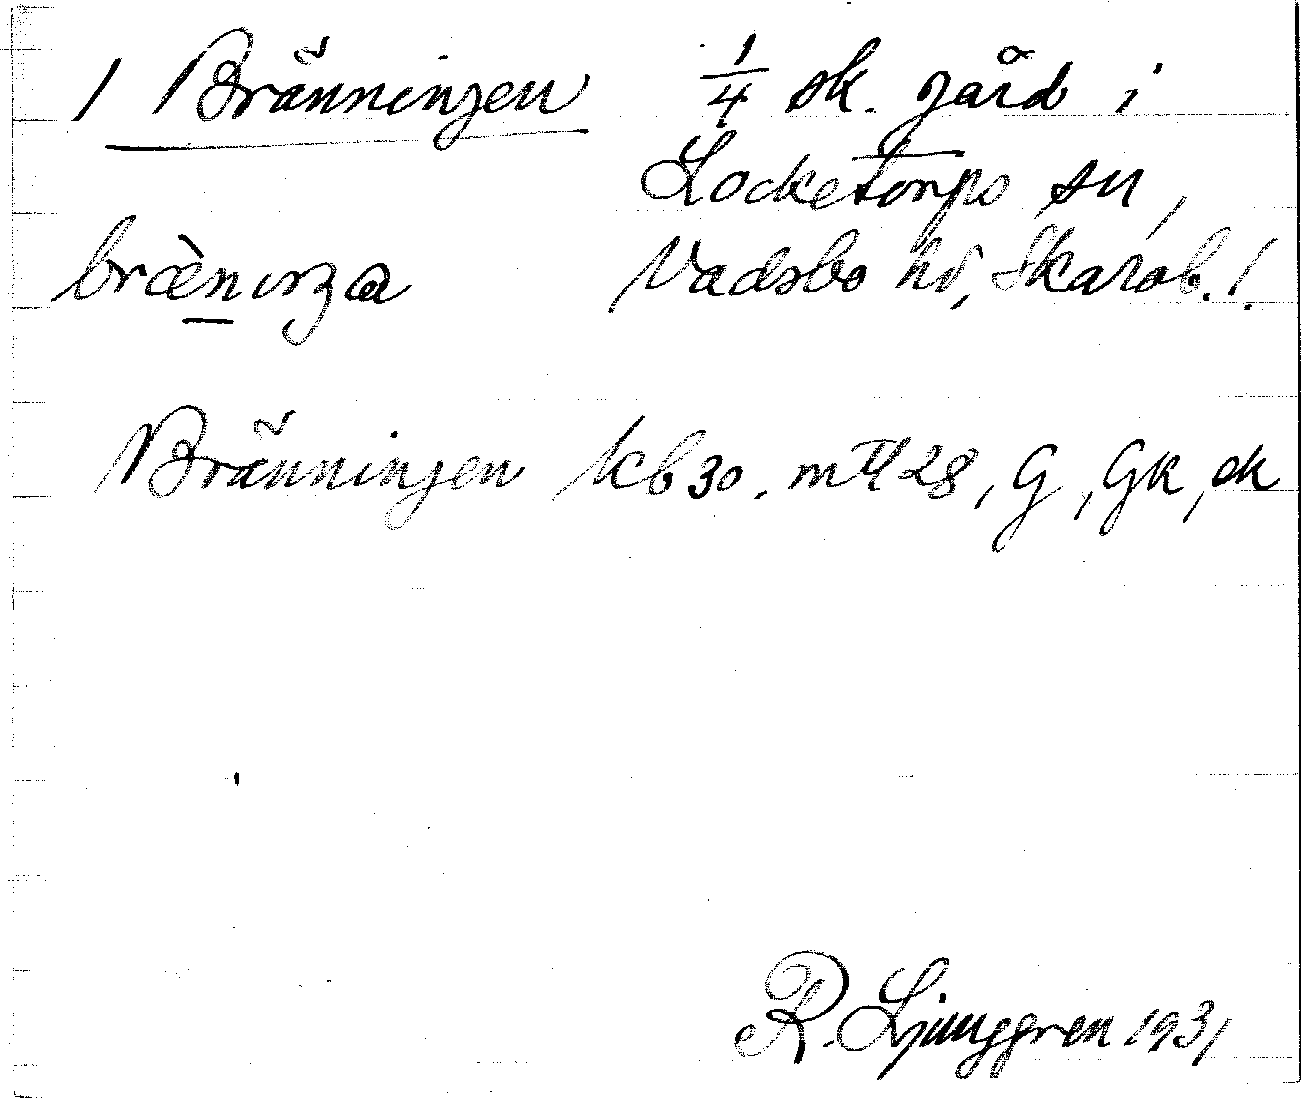 1 Bränningen 1/4 sk. gård i
Locketorps sn,
bræ̀nıŋa Vadsbo hd, Skarab. l.
Bränningen kb 30, mtl 28, G, GK, ek
R. Ljunggren 1931